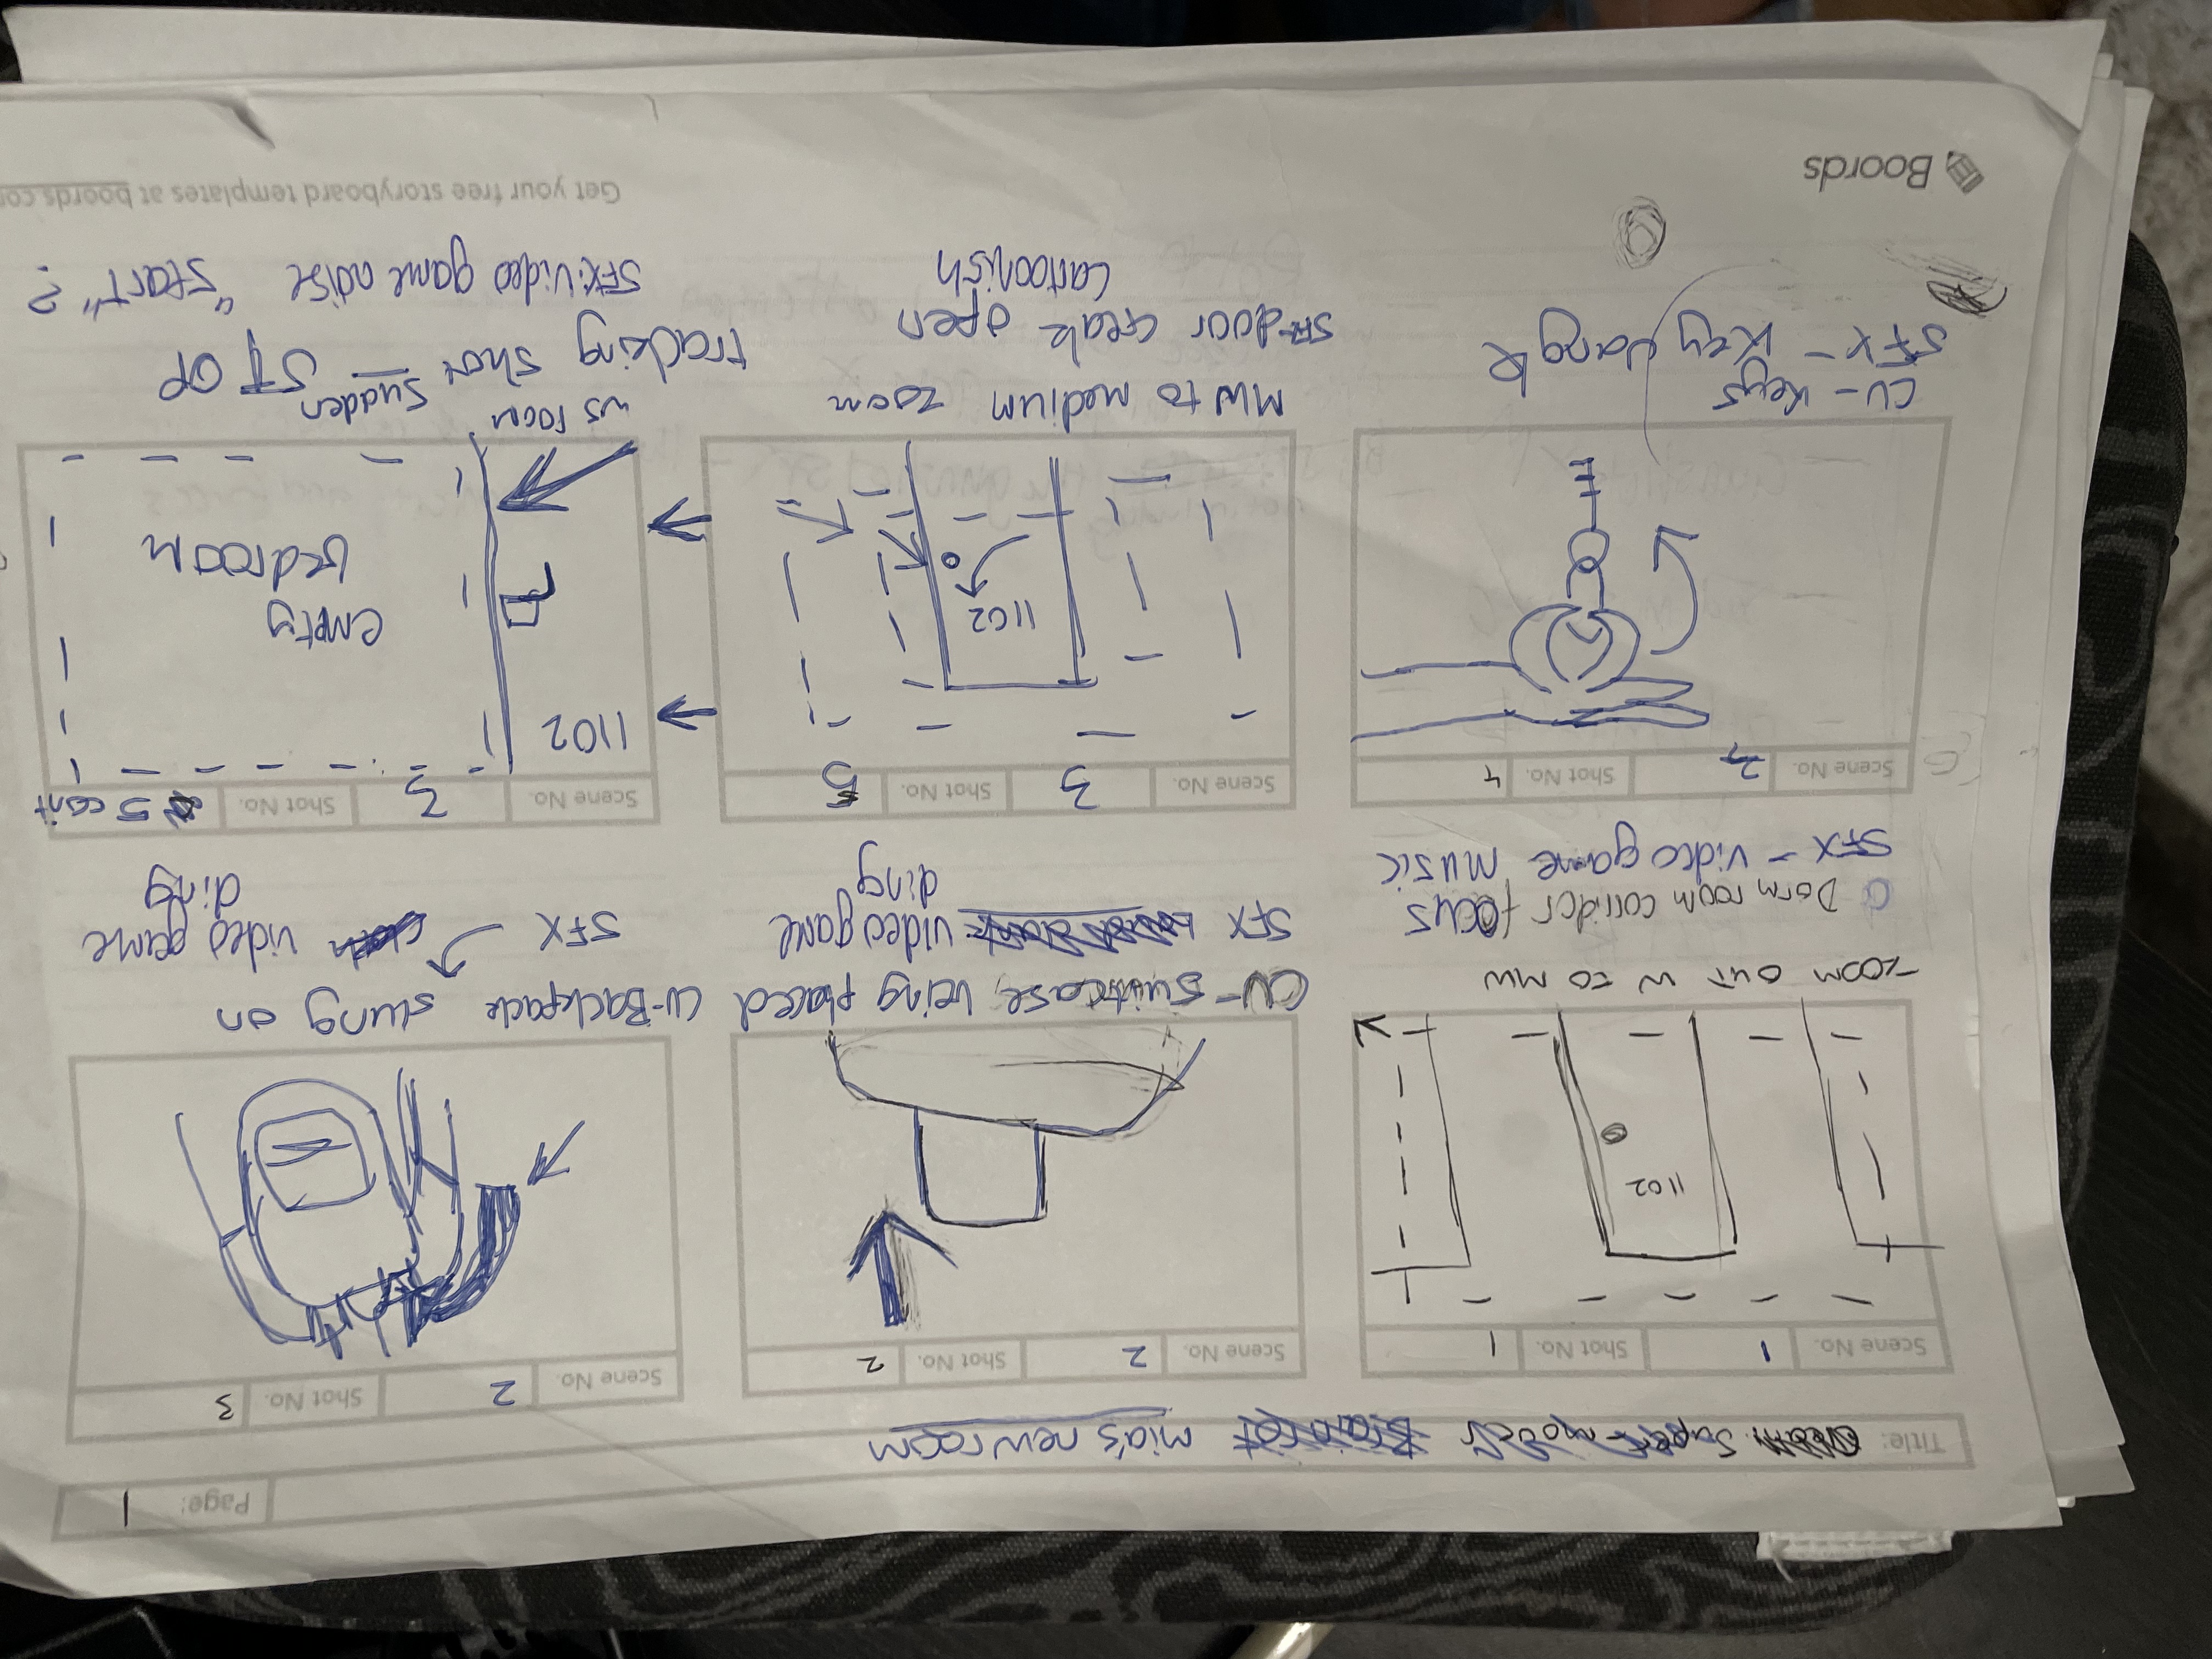 Page: 1
Title: Super-model Brainrot mia's new room
Scene No. 1 Shot No. 1
1102
ZOOM OUT W TO MW
Dorm room corridor focus
SFX - video game music
Scene No. 2 Shot No. 2
CU - suitcase being placed
SFX video game
ding
Scene No. 2 Shot No. 3
CU-Backpack slung on
SFX video game
ding
Scene No. 2 Shot No. 4
CU - Keys
SFX - Key Jangle
Scene No. 3 Shot No. 5
1102
MW to medium zoom
SFX-door creak open
Cartoonish
Scene No. 3 Shot No. 5 cont
1102
empty
bedroom
WS room
tracking shot sudden STOP
SFX: Video game noise "start"?
Boords
Get your free storyboard templates at boords.co